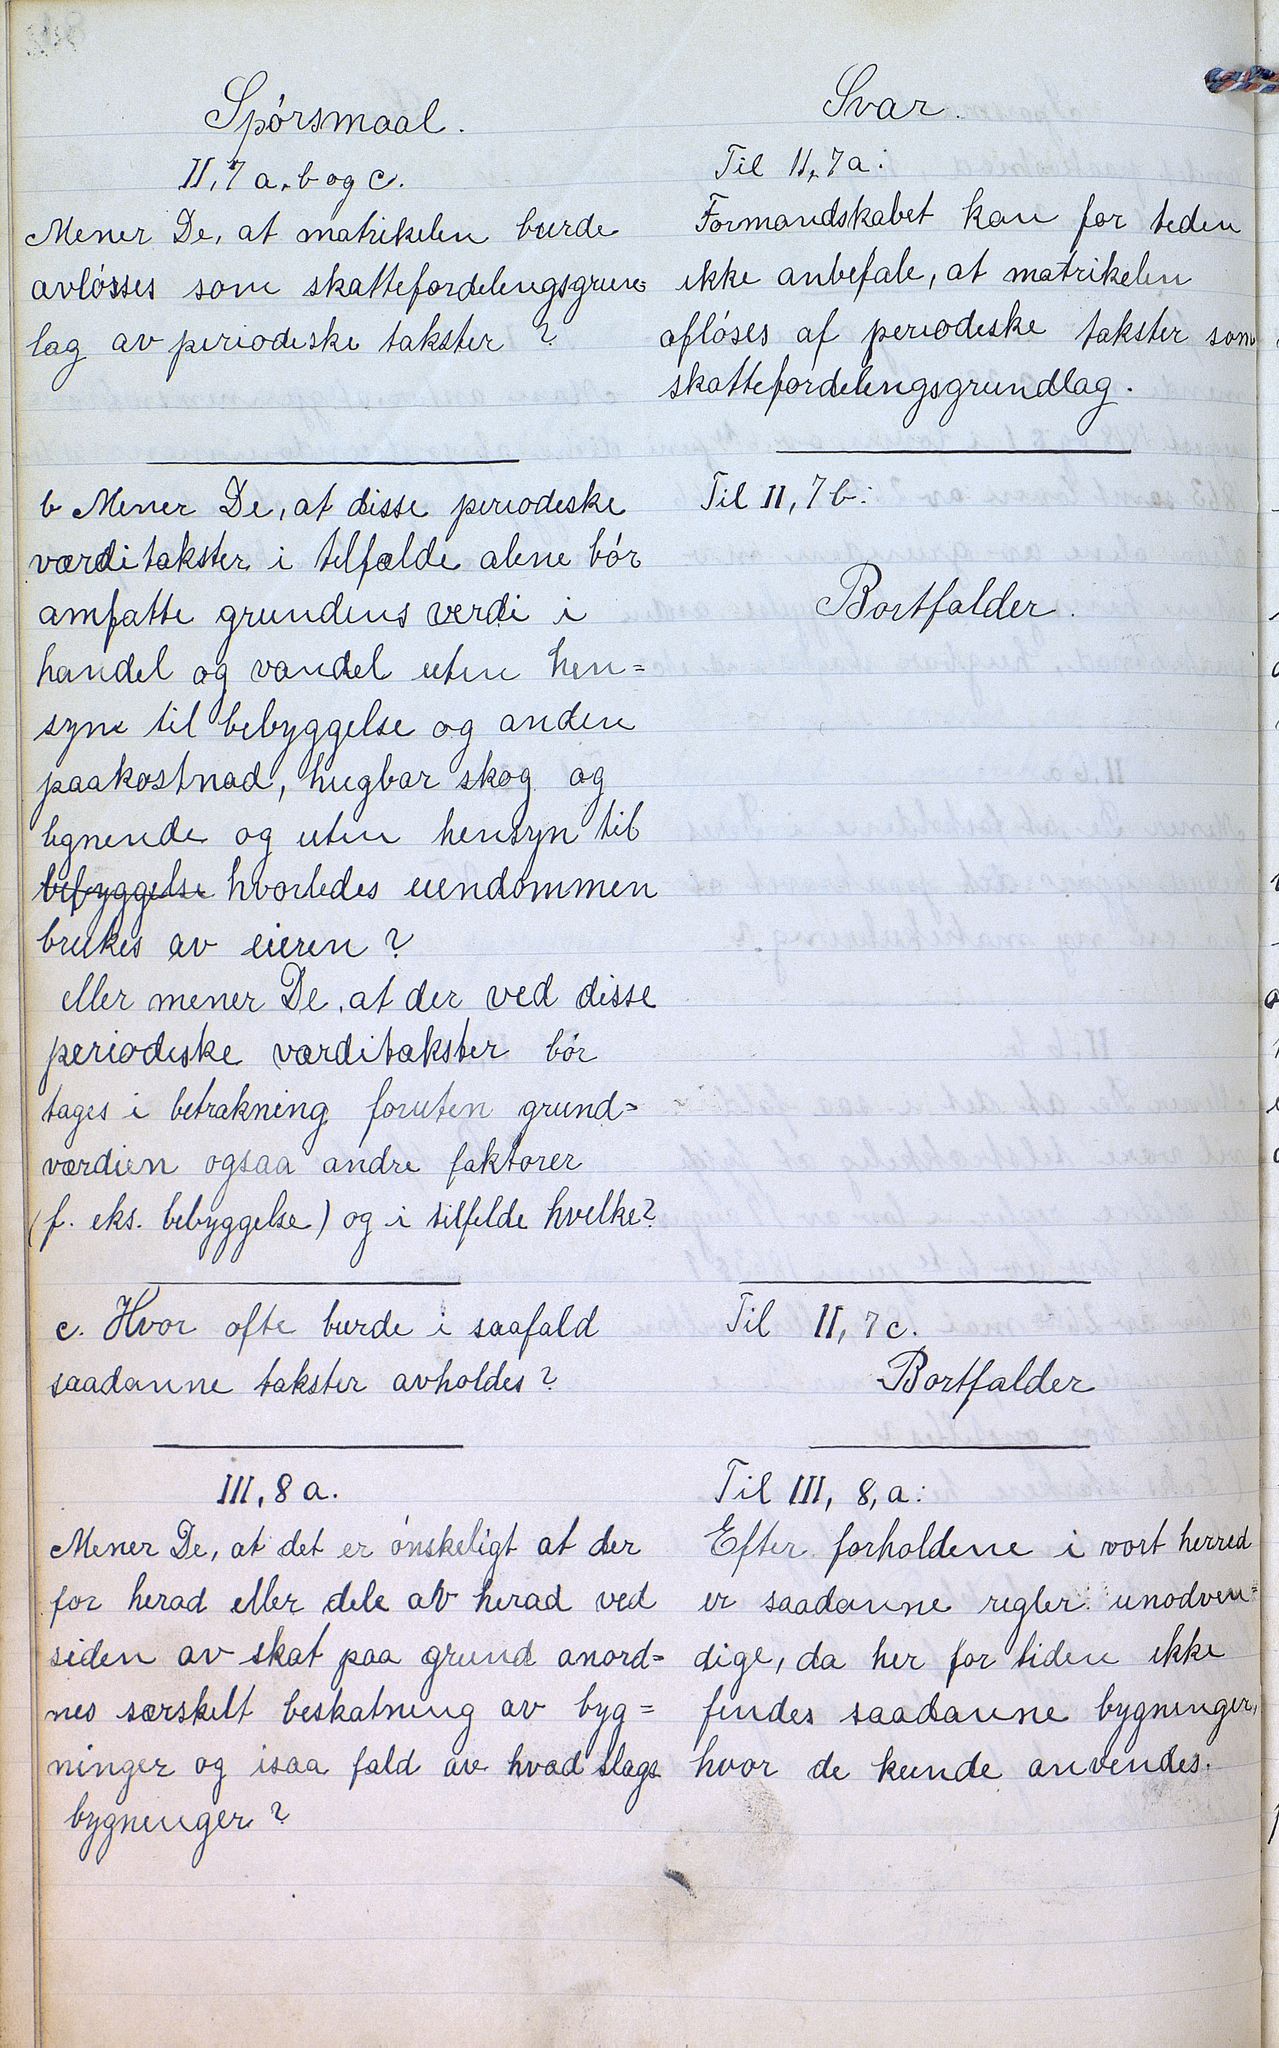 Spórsmaal.
II, 7 a, b og c.
Mener De, at matrikelen burde
avlósses som skattefordelingsgrun=
lag av periodiske takster?
b Mener De, at disse periodiske
værditakster i tilfælde alene bór
amfatte grundens verdi i
handel og vandel uten hen=
syn til bebyggelse og anden
paakostnad, hugbar skog og
lignende og uten hensyn til
bebyggelse hvorledes eiendommen
brukes av eieren?
eller mener De, at der ved disse
periodiske værditakster bór
tages i betrakning foruten grund=
værdien ogsaa andre faktorer
(f. eks. bebyggelse) og i tilfelde hvilke?
c. Hvor ofte burde i saafald
saadanne takster avholdes?
III, 8 a.
Mener De, at det er ónskeligt at der
for herad eller dele av herad ved
siden av skat paa grund anord=
nes særskilt beskatning av byg=
ninger og isaa fald av hvad slags
bygninger?
Svar.
Til II, 7 a:
Formandskabet kan for tiden
ikke anbefale, at matrikelen
aflóses af periodiske takster som
skattefordelingsgrundlag.
Til II, 7 b:
Bortfalder.
Til II, 7 c.
Bortfalder
Til III, 8, a:
Efter forholdene i vort herred
er saadanne regler unodven=
dige, da her for tiden ikke
findes saadanne bygninger,
hvor de kunde anvendes.